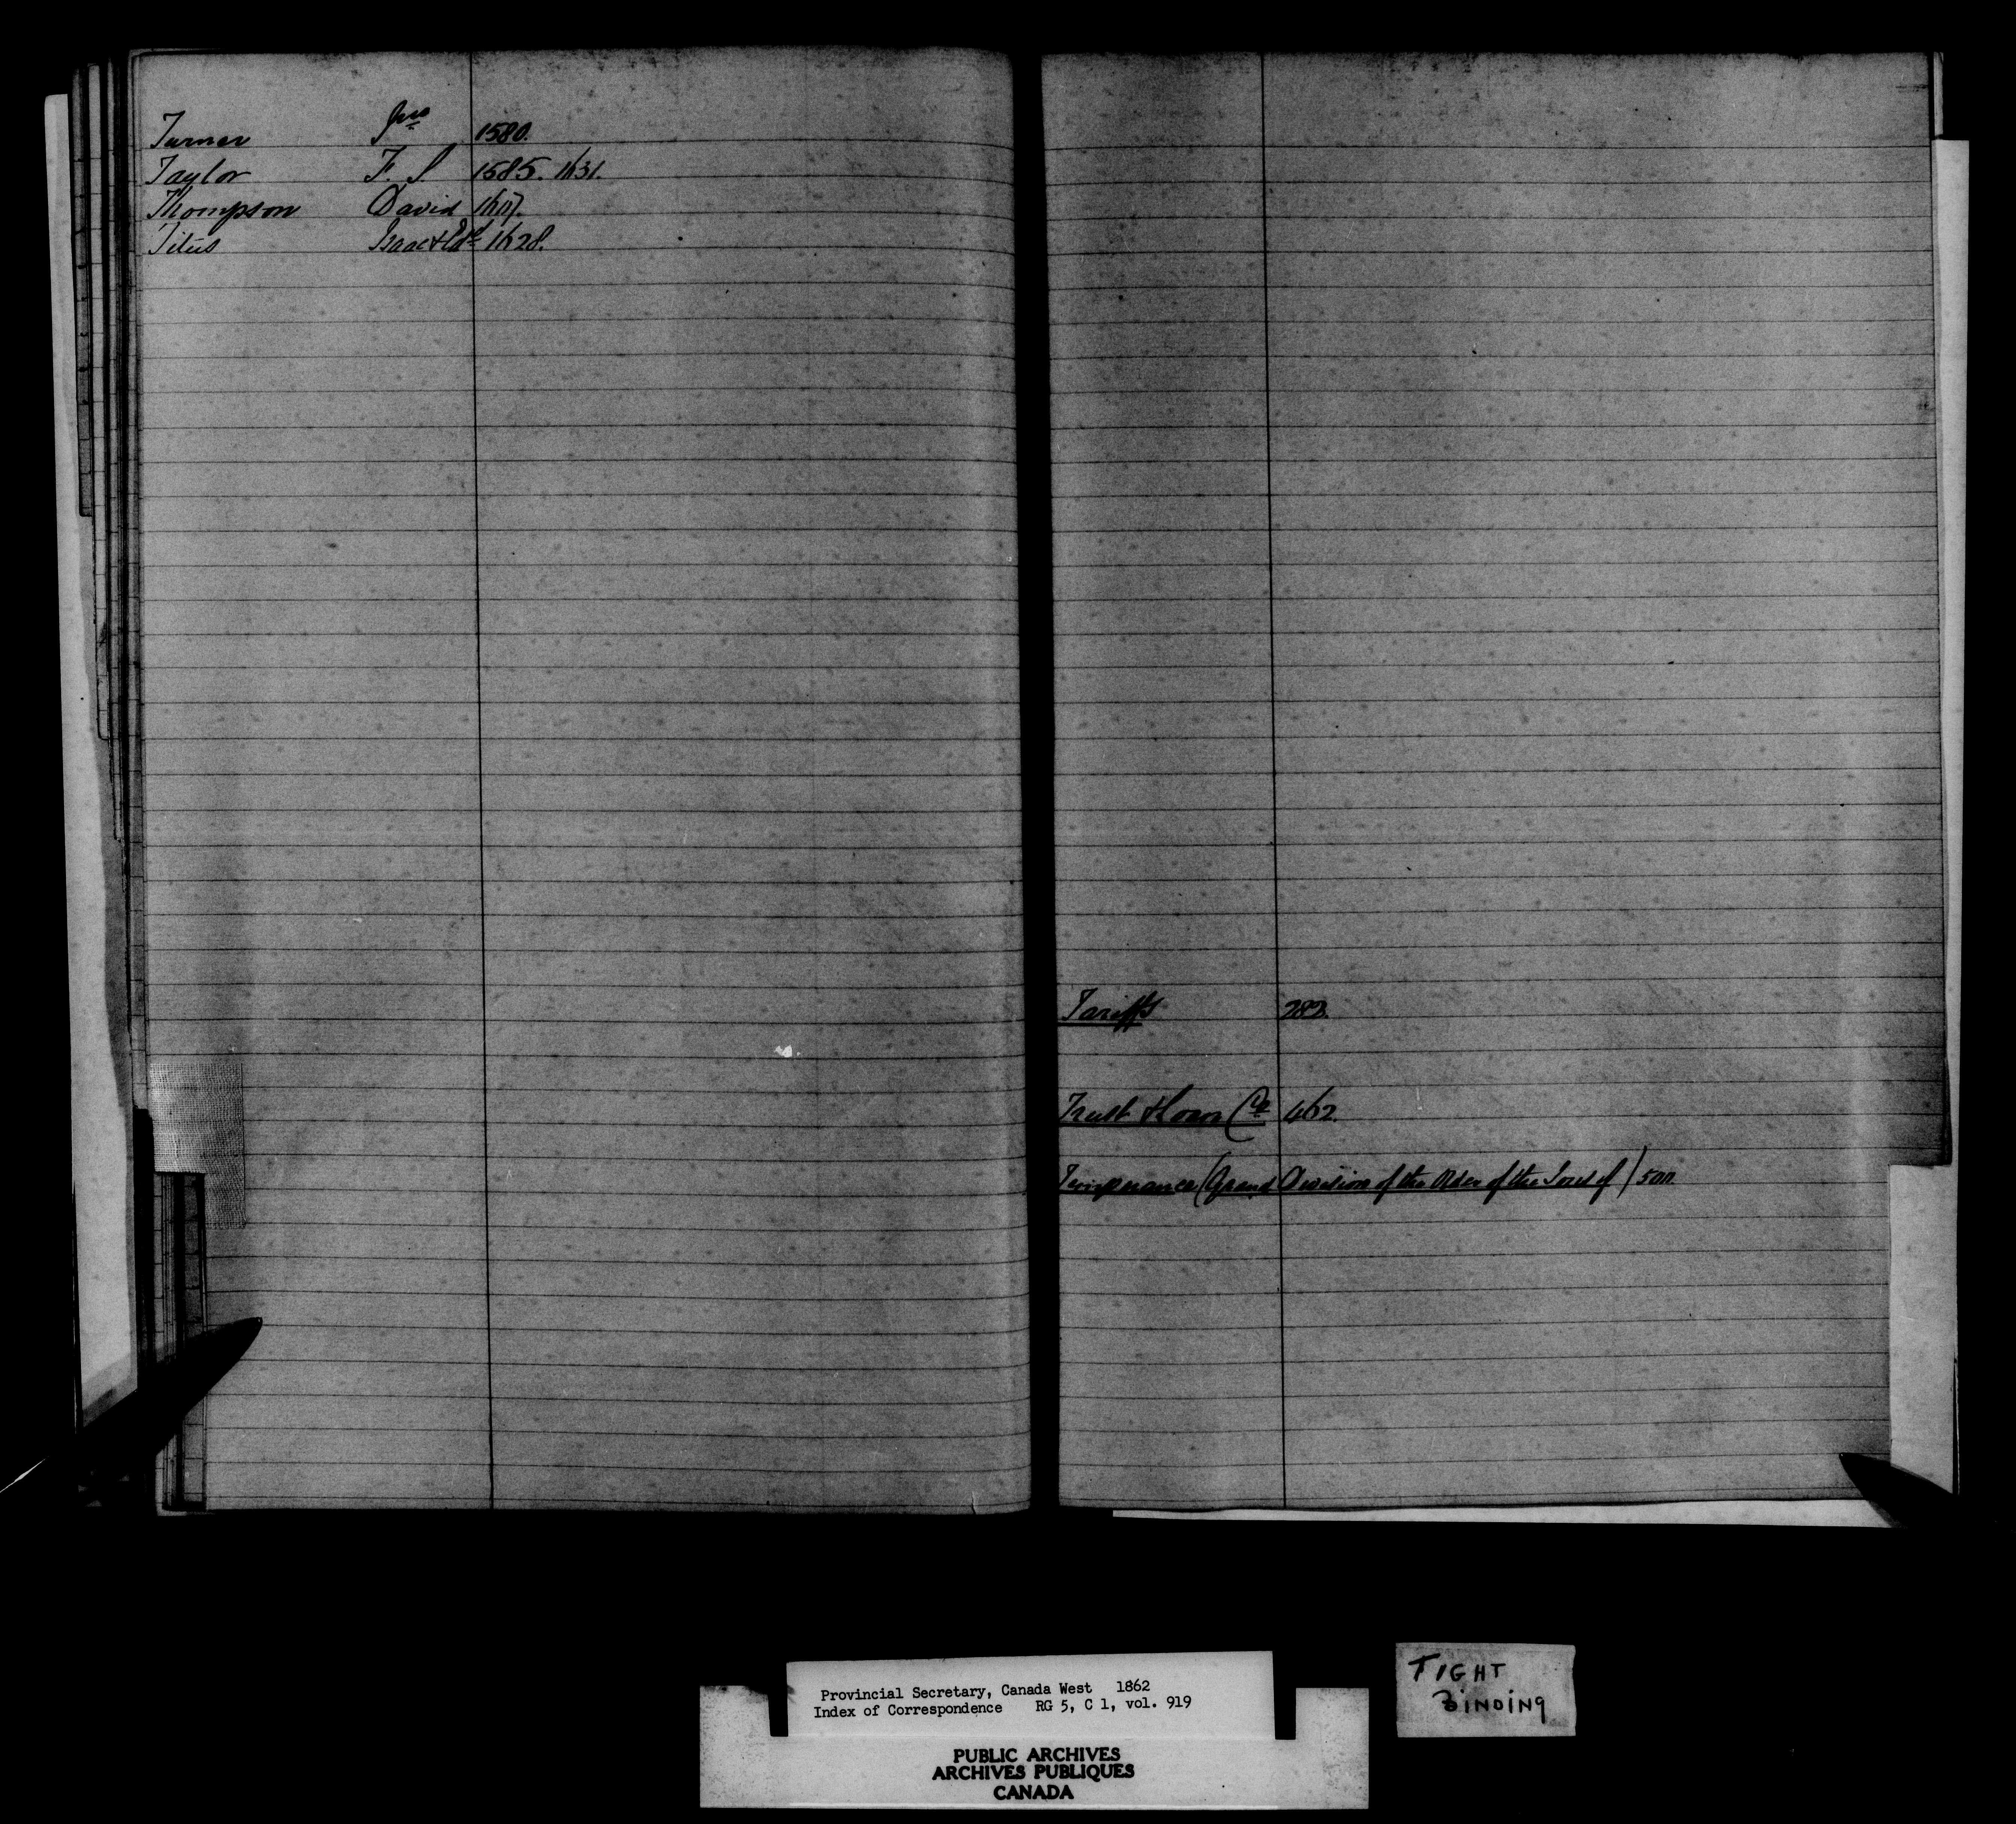 Turner Jno 1580.
Taylor F. S. 1585. 1631.
Thompson David 1607.
Titus Isaac & Edd 1628.
Tariffs 282.
Trust & Loan Co 462.
Temperance (Grand Division of the Order of the Sons of) 500
Provincial Secretary, Canada West 1862
Index of Correspondence RG 5, C 1, vol. 919
PUBLIC ARCHIVES
ARCHIVES PUBLIQUES
CANADA
TIGHT
BINDING